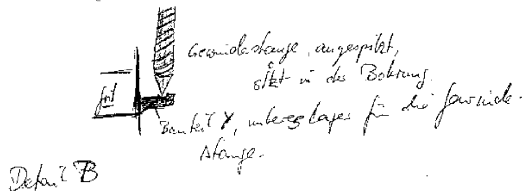 Gewindestange, angespitzt,
sitzt in der Bohrung.
Bauteil Y, unteres Lager für die Gewinde-
stange.
Detail B